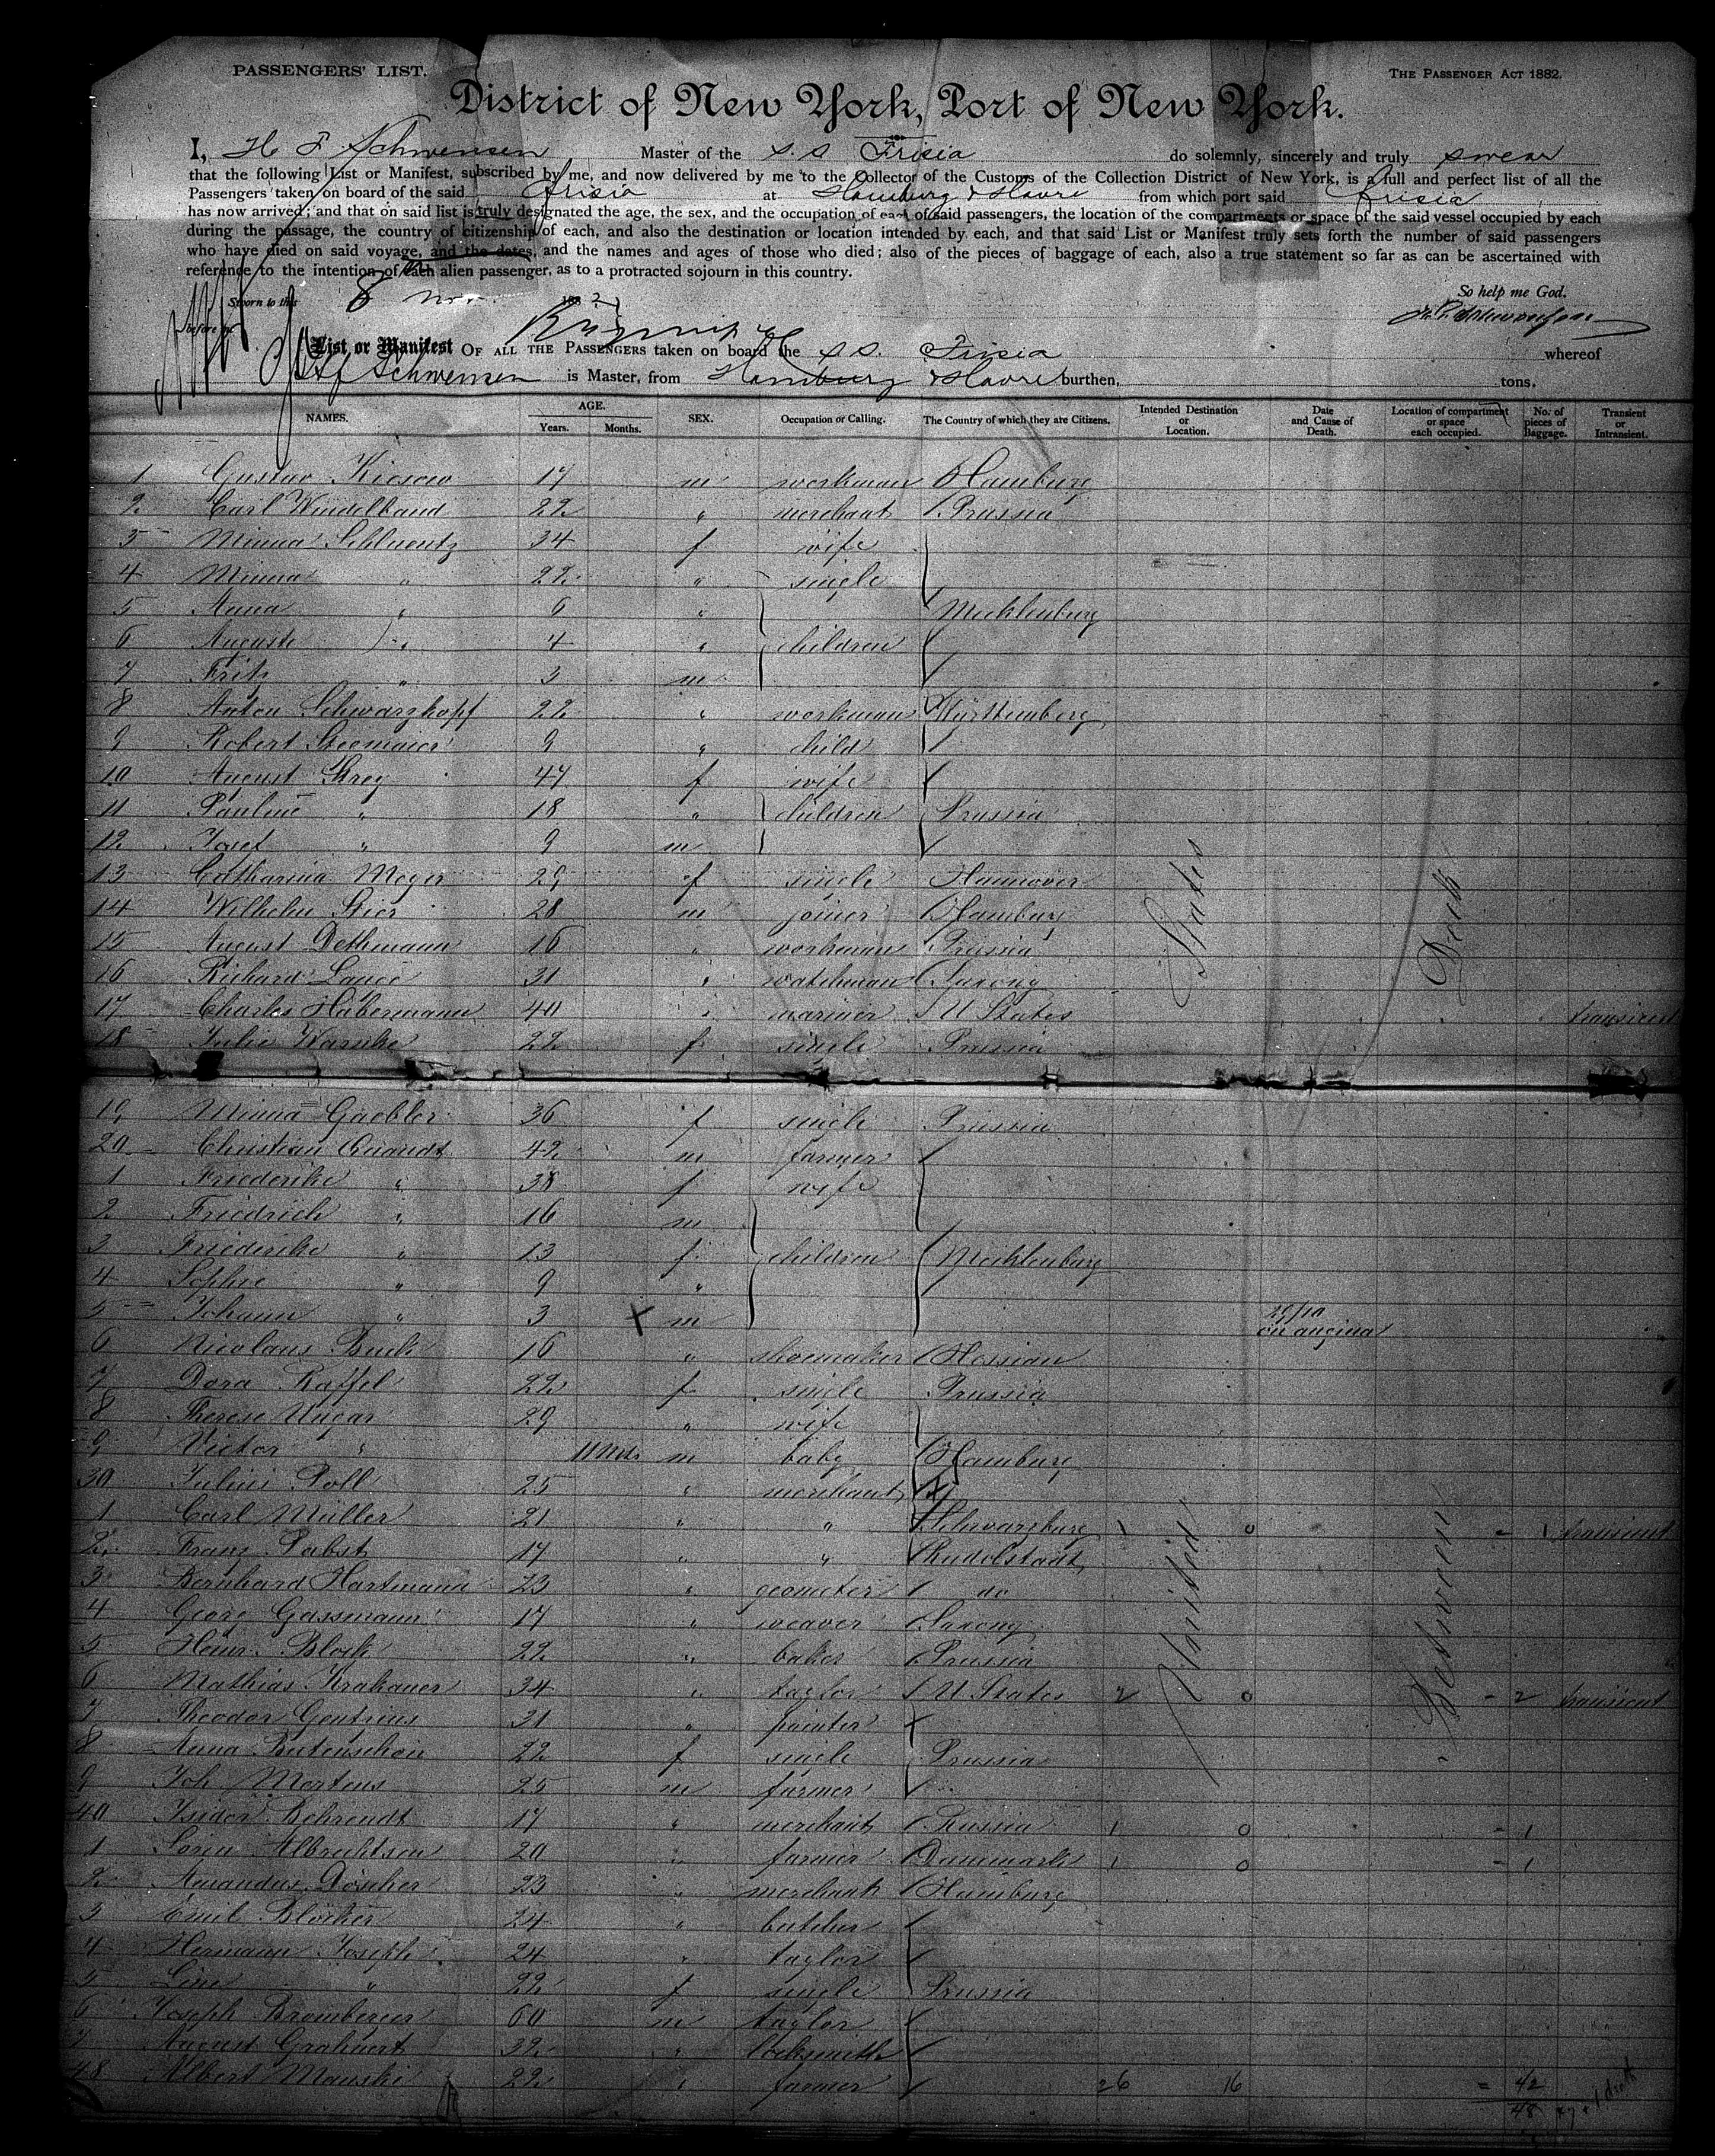 PASSENGERS' LIST.
THE PASSENGER ACT 1882.
District of New York, Port of New York.
I, H F Schwensen Master of the S.S Frisia do solemnly, sincerely and truly swear
that the following List or Manifest, subscribed by me, and now delivered by me to the Collector of the Customs of the Collection District of New York, is a full and perfect list of all the
Passengers taken on board of the said Frisia at Hamburg & Havre from which port said Frisia
has now arrived; and that on said list is truly designated the age, the sex, and the occupation of each of said passengers, the location of the compartments or space of the said vessel occupied by each
during the passage, the country of citizenship of each, and also the destination or location intended by each, and that said List or Manifest truly sets forth the number of said passengers
who have died on said voyage, and the dates, and the names and ages of those who died; also of the pieces of baggage of each, also a true statement so far as can be ascertained with
reference to the intention of each alien passenger, as to a protracted sojourn in this country.
Sworn to this 8 Nov. 1882
So help me God.
before me
List or Manifest OF ALL THE PASSENGERS taken on board the S.S. Frisia whereof
Schwensen is Master, from Hamburg & Havre burthen, tons.
NAMES. AGE. Years. Months. SEX. Occupation or Calling. The Country of which they are Citizens. Intended Destination or Location. Date and Cause of Death. Location of compartment or space each occupied. No. of pieces of Baggage. Transient or Intransient.
1 Gustav 17 m workman Hamburg
2 Carl Windelband 22 " merchant Prussia
3 Minna Schluentz 34 f wife
4 Minna " 22 " single
5 Anna " 6 " Mecklenburg
6 Auguste " 4 " children
7 Fritz " 3 m
8 Anton Schwarzkopf 22 " workman Württemberg
9 Robert Steemaier 9 " child
10 August Grey 47 f wife
11 Pauline " 18 " children Prussia
12 Josef " 9 m
13 Catharina Meyer 29 f single Hannover
14 Wilhelm Stier 28 m joiner Hamburg
15 August Dethmann 16 " workman Prussia
16 Richard Lange 31 " watchman Saxony
17 Charles Habermann 40 " mariner U States transient
18 Julie Warnke 22 f single Prussia
19 Minna Gaebler 36 f single Prussia
20 Christian Quandt 42 m farmer
1 Friederike " 38 f wife
2 Friedrich " 16 m
3 Friederike " 13 f children Mecklenburg
4 Sophie " 9 "
5 Johann " 3 X m 29/10 on angina
6 Nicolaus Buch 16 " shoemaker Hessian
7 Dora Raffel 22 f single Prussia
8 Therese Ungar 29 " wife
9 Victor " 11 Mths m baby Hamburg
30 Julius Poll 25 " merchant
1 Carl Müller 21 " " Schwarzburg 1 0 - 1 transient
2 Franz Pabst 17 " " Rudolstadt
3 Bernhard Hartmann 23 " geometer do
4 Georg Gassmann 17 " weaver Saxony
5 Heinr. Block 22 " baker Prussia
6 Mathias Krakauer 34 " taylor U States 2 0 - 2 transient
7 Theodor Gentzens 31 " painter
8 Anna Butenschön 22 f single Prussia
9 Joh Mertens 25 m farmer
40 Isidor Behrendt 17 " merchant Russia 1 0 - 1
1 Sören Albrechtsen 20 " farmer Danmark 1 0 - 1
2 Amandus Döscher 23 " merchant Hamburg
3 Emil Blöcker 24 " butcher
4 Hermann Joseph 24 " taylor
5 Line " 22 f single Prussia
6 Joseph Bromberger 60 m taylor
7 August Grahnert 32 " locksmith
48 Albert Manski 22 " farmer 26 16 = 42
48
United States
Between Deck